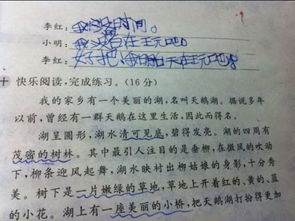 李红：我没时间。
小明：我没
李红：
十 快乐阅读，完成练习。(16 分)
我的家乡有一个美丽的湖，名叫天鹅湖。据说多年
以前，曾经有一群天鹅在这里生活，因此而得名。
湖呈圆形，湖水清可见底，碧得发亮。湖的四周有
茂密的树林。其中最引人注目的是垂柳，在微风的吹动
下，柳条迎风起舞，湖水映衬出柳姑娘的身影，十分秀
美。树下是一片嫩绿的草地，草地上开着红的、黄的、蓝
的小花。湖上有一座美丽的小桥，把天鹅湖打扮得更加